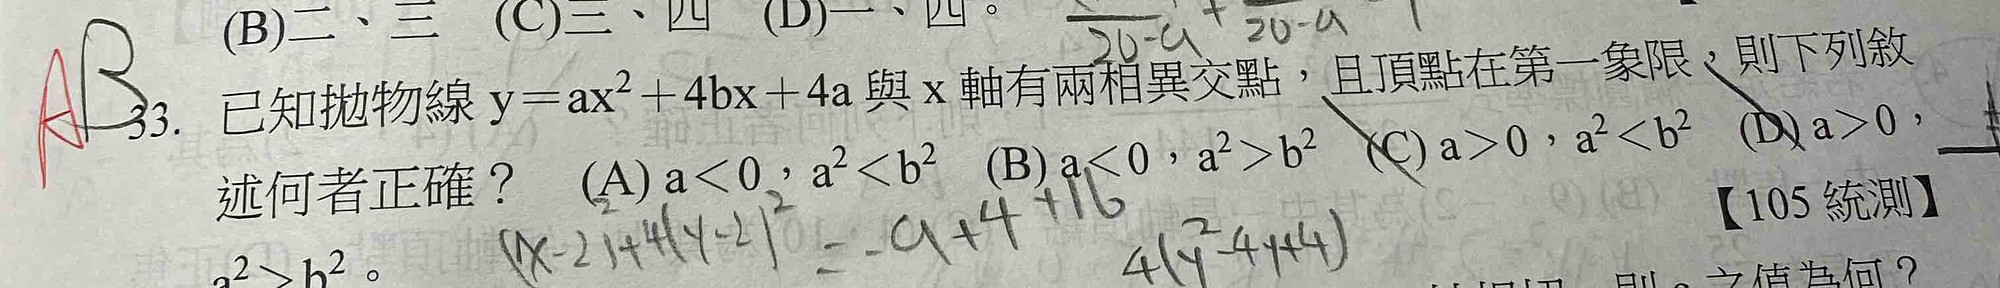 (B)二、三 (C)三、四 (D)一、四。
20-a + 20-a
AB
33. 已知拋物線 y=ax²+4bx+4a 與 x 軸有兩相異交點,且頂點在第一象限,則下列敘
述何者正確? (A) a<0,a²<b² (B) a<0,a²>b² (C) a>0,a²<b² (D) a>0,
【105 統測】
a²>b²。
(x-2)²+4(y-2)²=-a+4+16
4(y²-4y+4)
則 a 之值為何?